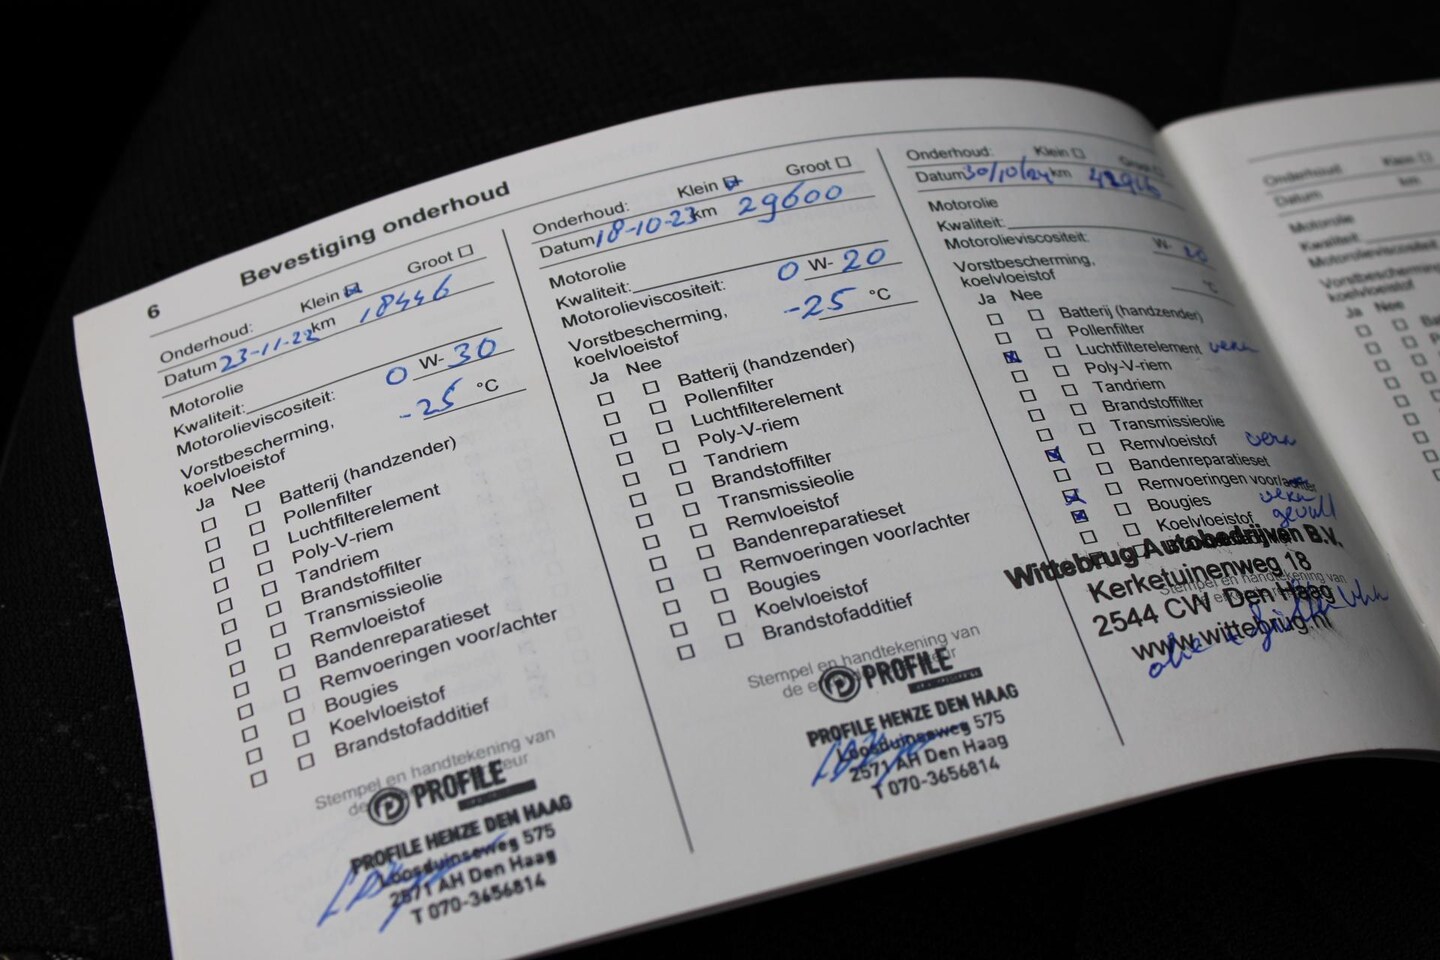 6
Bevestiging onderhoud
Onderhoud: Klein Groot
Datum 23-11-22 km 18446
Motorolie
Kwaliteit:
Motorolieviscositeit: 0 W- 30
Vorstbescherming,
koelvloeistof -25 °C
Ja Nee
Batterij (handzender)
Pollenfilter
Luchtfilterelement
Poly-V-riem
Tandriem
Brandstoffilter
Transmissieolie
Remvloeistof
Bandenreparatieset
Remvoeringen voor/achter
Bougies
Koelvloeistof
Brandstofadditief
Stempel en handtekening van
PROFILE
PROFILE HENZE DEN HAAG
Loosduinseweg 575
2571 AH Den Haag
T 070-3656814
Onderhoud: Klein Groot
Datum 18-10-23 km 29600
Motorolie
Kwaliteit:
Motorolieviscositeit: 0 W- 20
Vorstbescherming,
koelvloeistof -25 °C
Ja Nee
Batterij (handzender)
Pollenfilter
Luchtfilterelement
Poly-V-riem
Tandriem
Brandstoffilter
Transmissieolie
Remvloeistof
Bandenreparatieset
Remvoeringen voor/achter
Bougies
Koelvloeistof
Brandstofadditief
Stempel en handtekening van
PROFILE
PROFILE HENZE DEN HAAG
Loosduinseweg 575
2571 AH Den Haag
T 070-3656814
Onderhoud: Klein Groot
Datum 30/10/24 km
Motorolie
Kwaliteit:
Motorolieviscositeit: W-
Vorstbescherming,
koelvloeistof °C
Ja Nee
Batterij (handzender)
Pollenfilter
Luchtfilterelement
Poly-V-riem
Tandriem
Brandstoffilter
Transmissieolie
Remvloeistof
Bandenreparatieset
Remvoeringen voor/achter
Bougies
Koelvloeistof
Wittebrug Autobedrijven B.V.
Kerketuinenweg 18
2544 CW Den Haag
www.wittebrug.nl
Onderhoud: Klein
Datum km
Motorolie
Kwaliteit:
Motorolieviscositeit
Vorstbescherming
koelvloeistof
Ja Nee